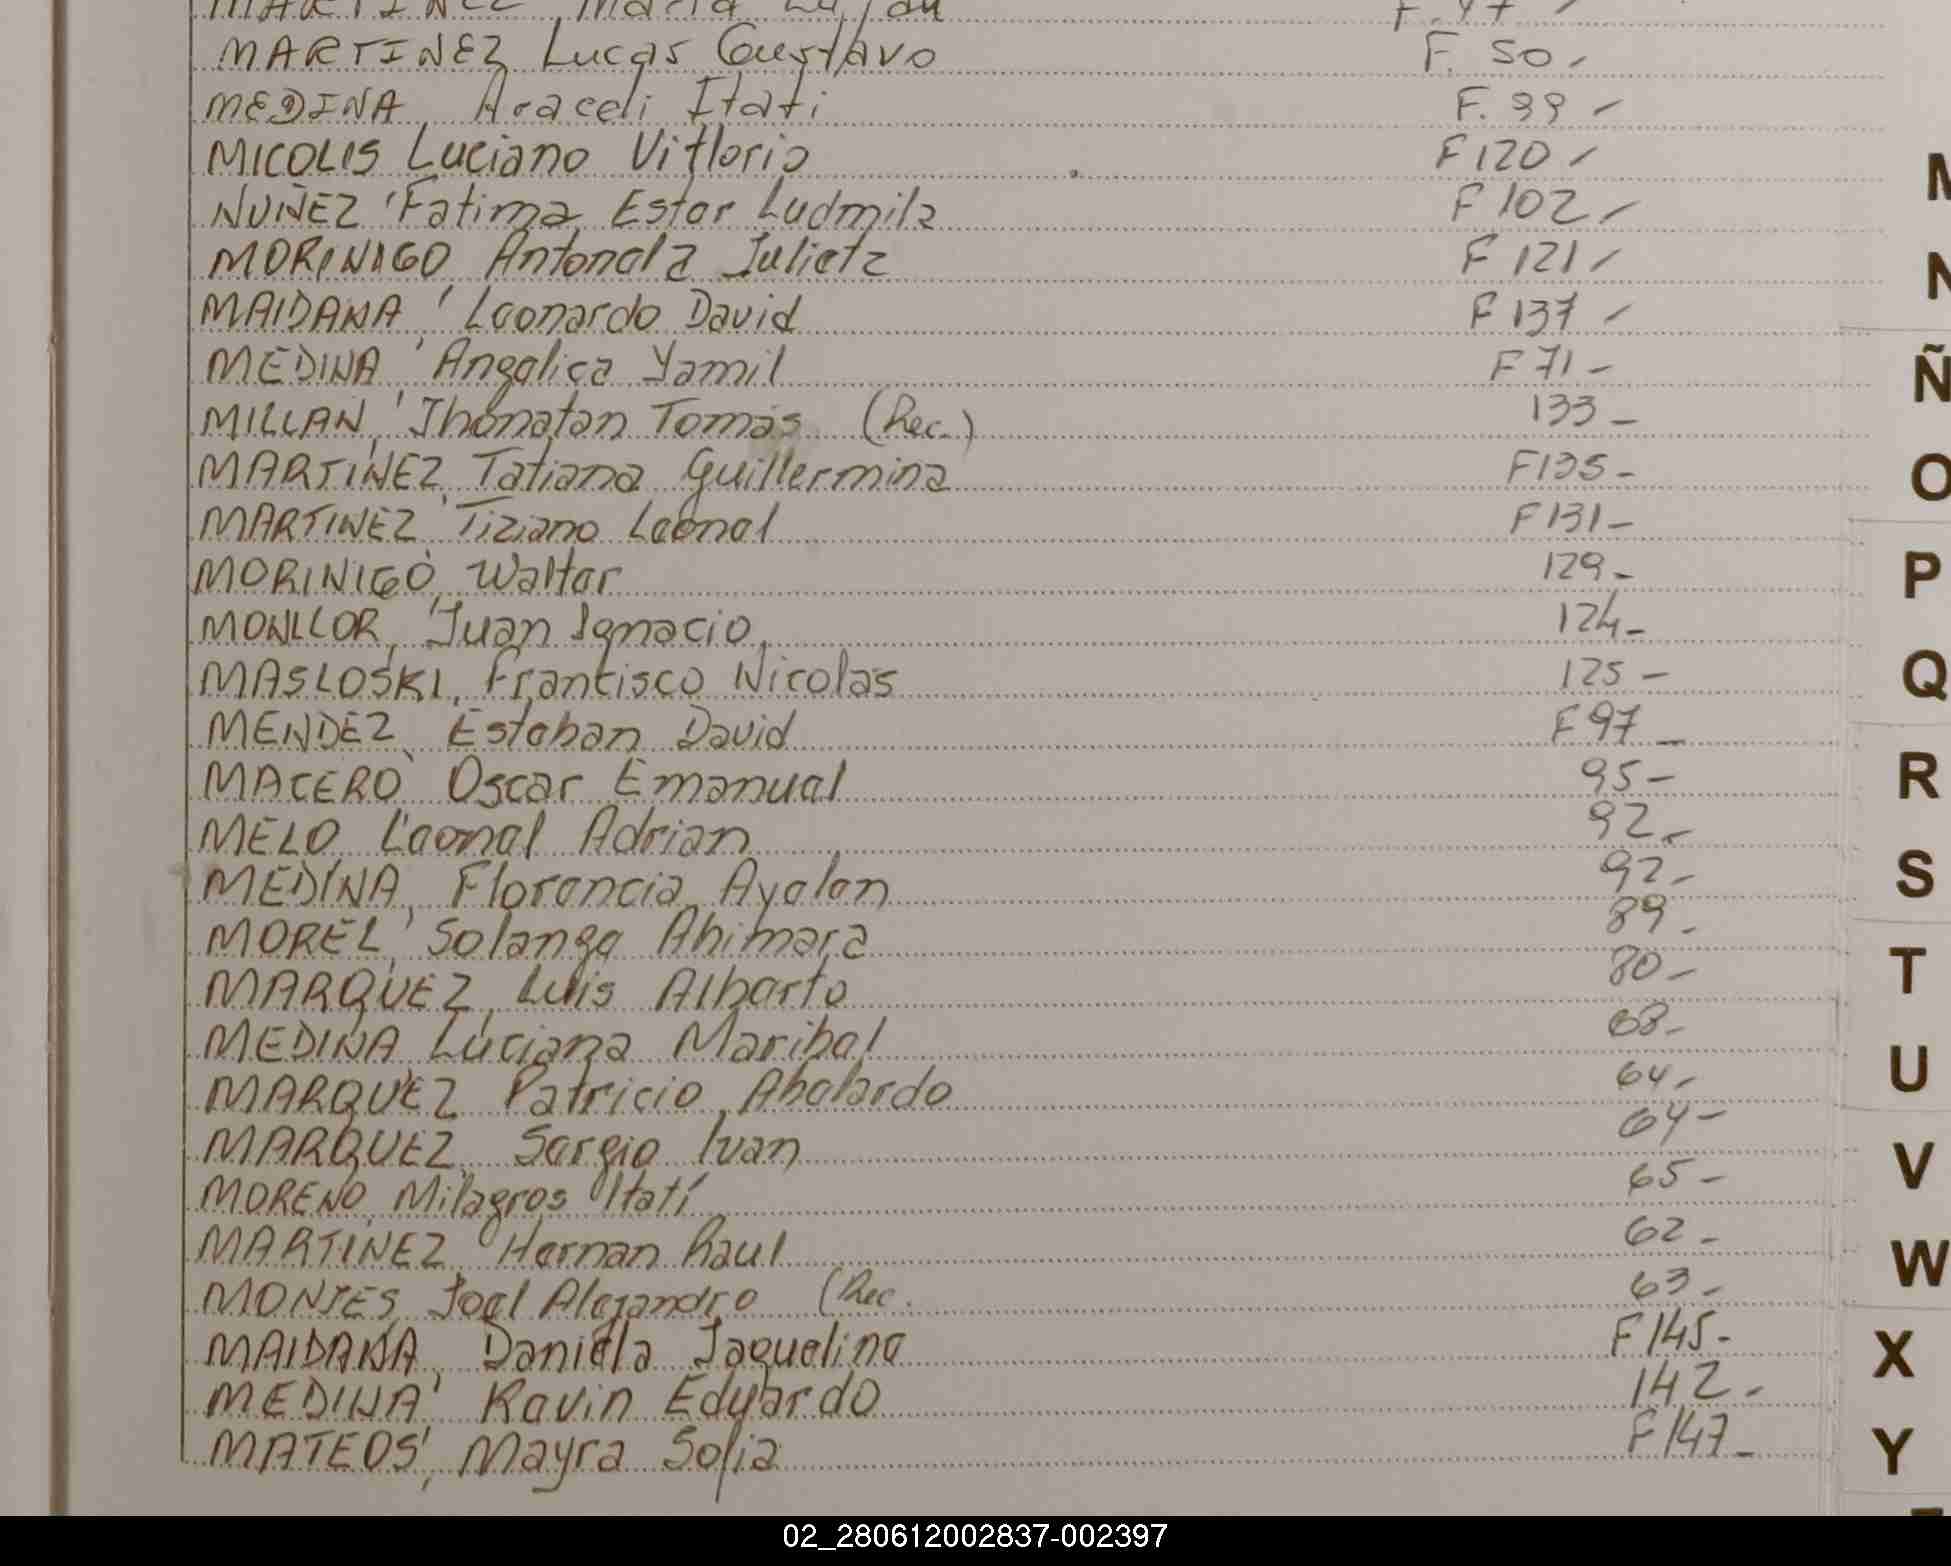 MARTINEZ, Maria Lujan F. 47 -
MARTINEZ, Lucas Gustavo F. 50 -
MEDINA, Araceli Itati F. 99 -
MICOLIS Luciano Vittorio F 120 -
NUÑEZ, Fatima Ester Ludmila F 102 -
MORINIGO Antonela Julieta F 121 -
MAIDANA, Leonardo David F 137 -
MEDINA, Angelica Yamil F 71 -
MILLAN, Jhonatan Tomás (Rec.) 133 -
MARTINEZ, Tatiana Guillermina F135 -
MARTINEZ, Tiziano Leonel F131 -
MORINIGO, Walter 129 -
MONLLOR, Juan Ignacio 124 -
MASLOSKI, Francisco Nicolas 125 -
MENDEZ, Esteban David F 97 -
MACERO, Oscar Emanuel 95 -
MELO Leonel Adrian 92 -
MEDINA, Florencia Ayelen 92 -
MOREL, Solange Ahimara 89 -
MARQUEZ, Luis Alberto 80 -
MEDINA Luciana Maribel 68 -
MARQUEZ Patricio Abelardo 64 -
MARQUEZ, Sergio Ivan 64 -
MORENO, Milagros Itatí 65 -
MARTINEZ, Hernan Raul 62 -
MONTES, Joel Alejandro (Rec. 63 -
MAIDANA, Daniela Jaqueline F 145 -
MEDINA, Kevin Eduardo 142 -
MATEOS, Mayra Sofia F 147 -
M
N
Ñ
O
P
Q
R
S
T
U
V
W
X
Y
02_280612002837-002397